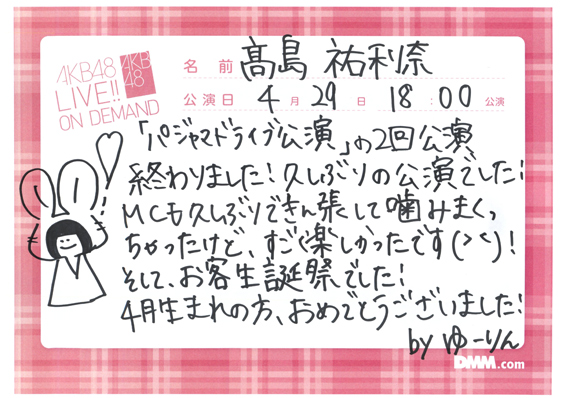 AKB48
LIVE!!
ON DEMAND
AKB
48
名前 髙島 祐利奈
公演日 4月29日 18:00公演
「パジャマドライブ公演」の2回公演
終わりました!久しぶりの公演でした!
MCも久しぶりできん張して噛みまくっ
ちゃったけど、すごく楽しかったです(><)!
そして、お客生誕祭でした!
4月生まれの方、おめでとうございました!
by ゆーりん
DMM.com